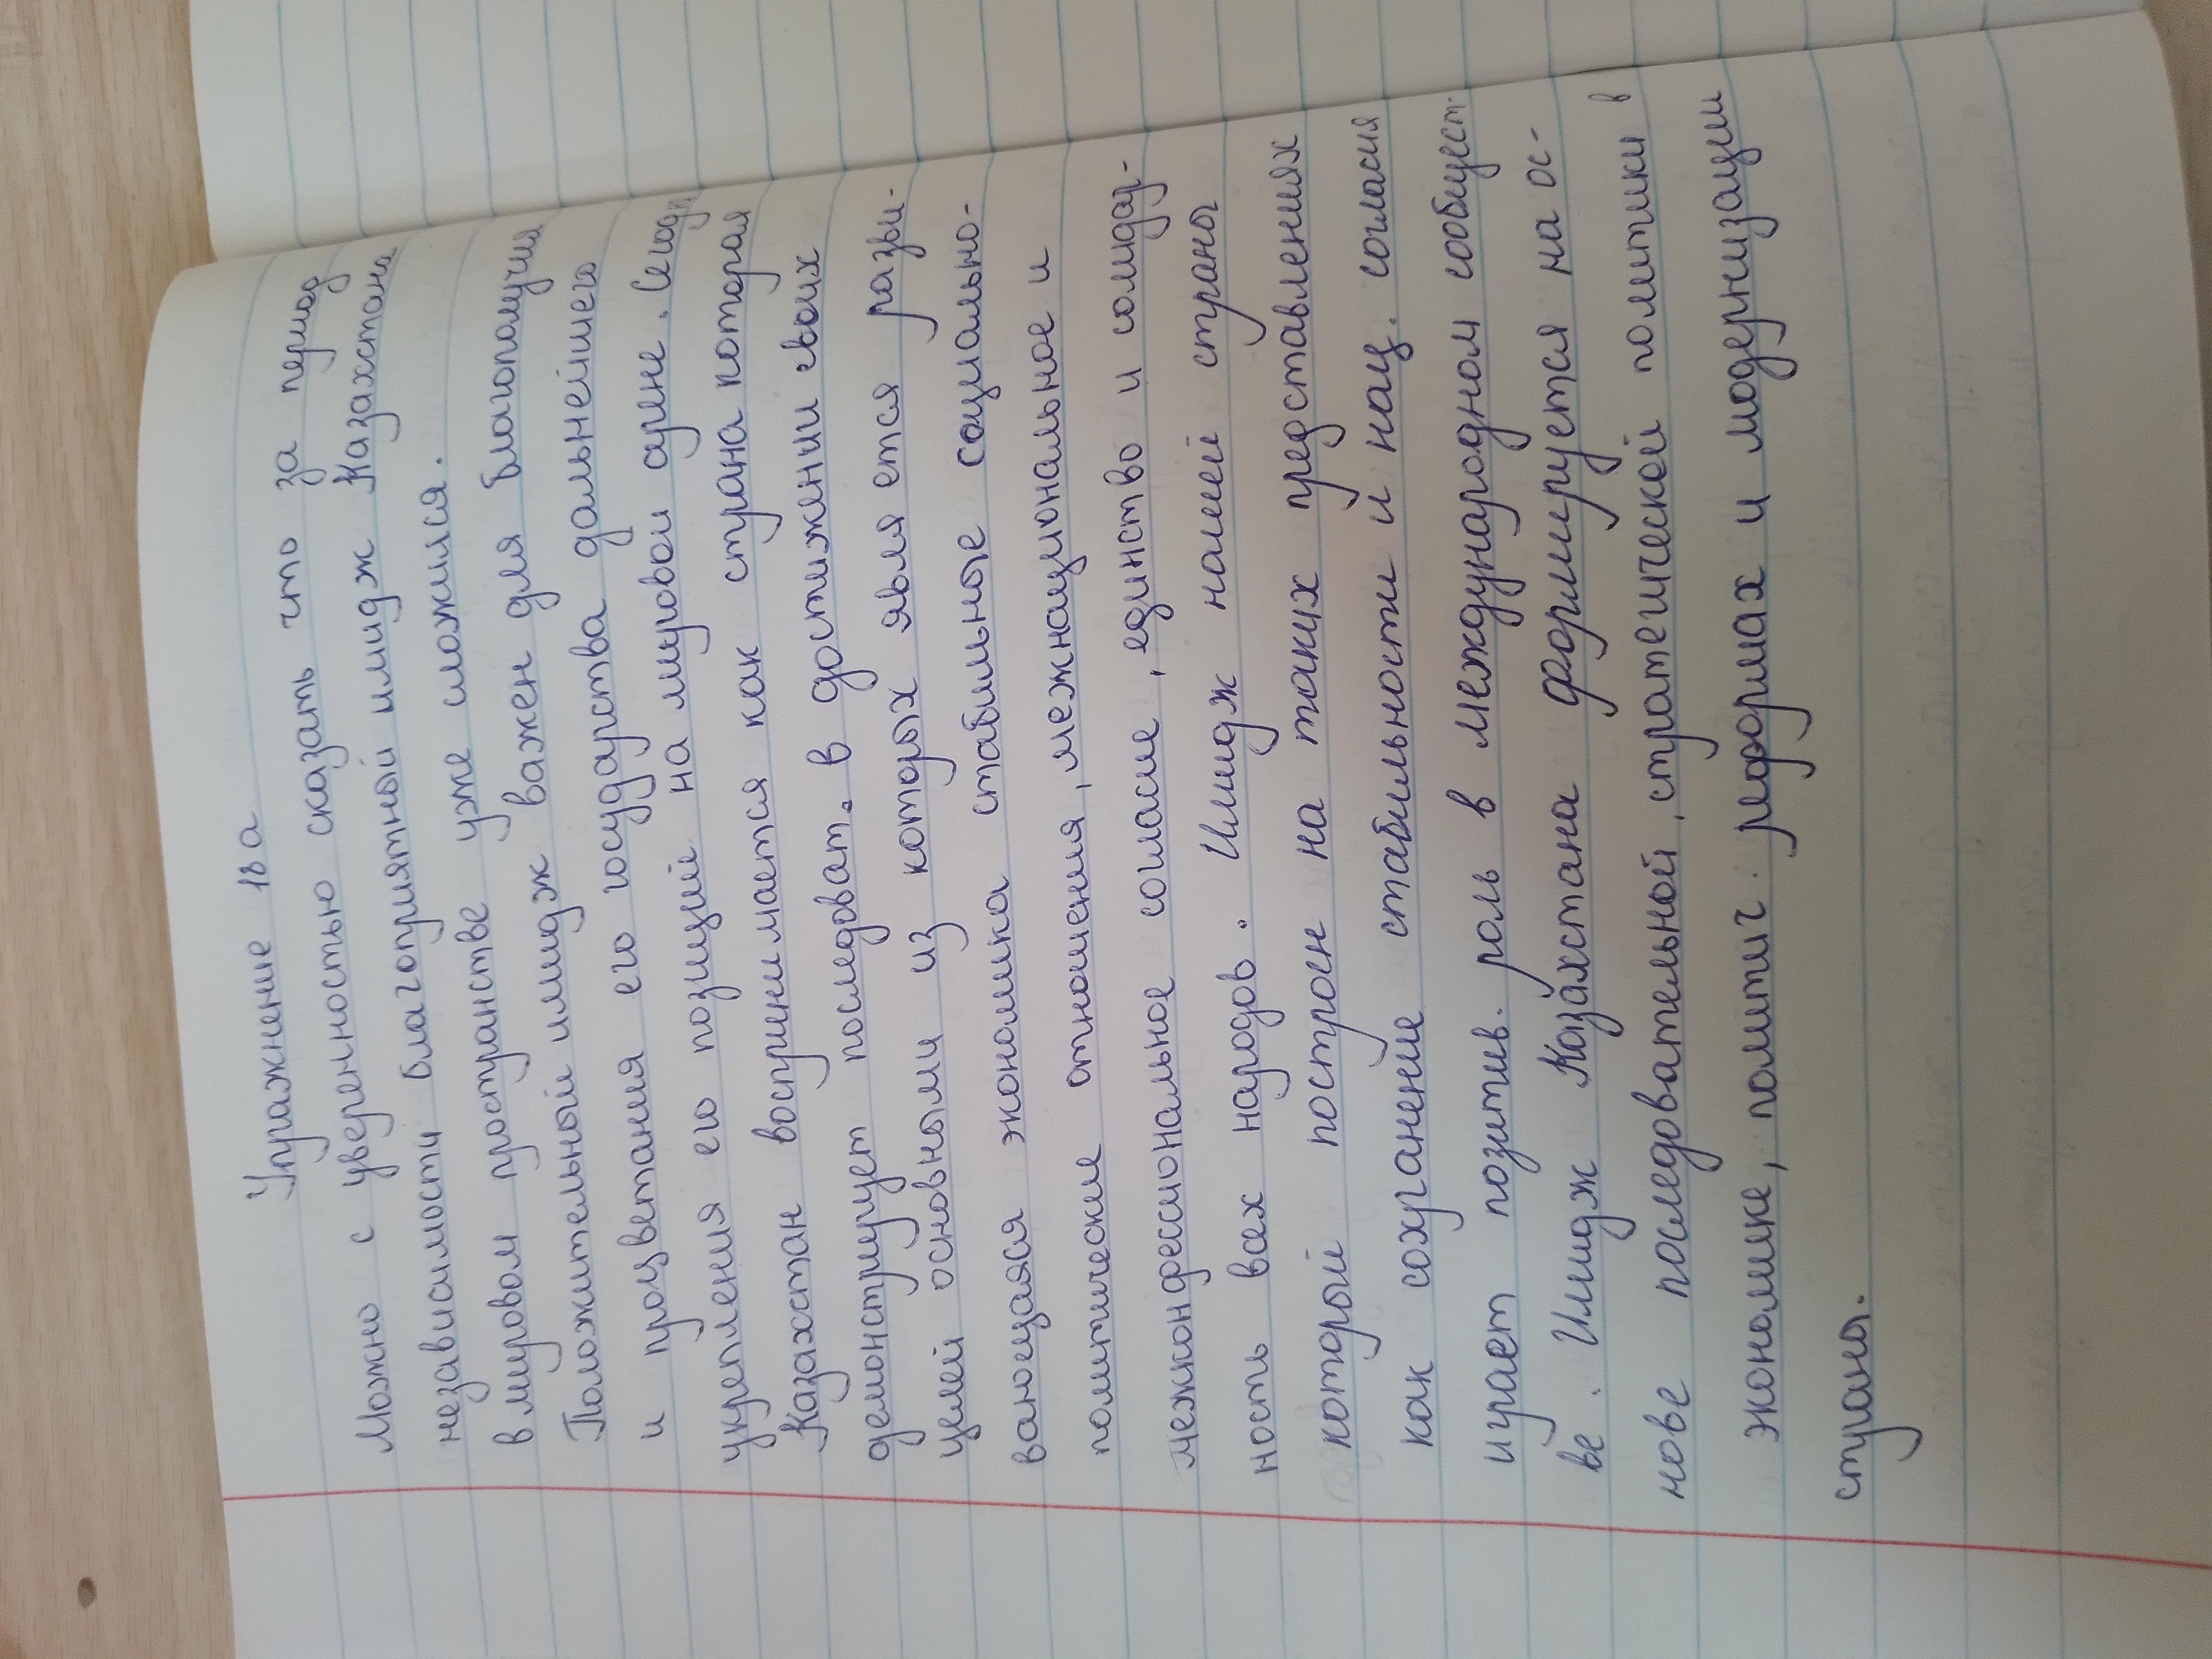 Упражнение 18а
Можно с уверенностью сказать что за период
независимости благоприятный имидж Казахстана
в мировом пространстве уже сложился.
Положительный имидж важен для благополучия
и процветания его государства дальнейшего
укрепления его позиций на мировой арене. Сегодн
Казахстан воспринимается как страна которая
демонстрирует последоват. в достижении своих
целей основными из которых является разви-
вающаяся экономика стабильное социально-
политические отношения, межнациональное и
межконфессиональное согласие, единство и солидар-
ность всех народов. Имидж нашей страны
который построен на таких представлениях
как сохранение стабильности и нац. согласия
играет позитив. роль в международном сообщест-
ве. Имидж Казахстана формируется на ос-
нове последовательной, стратегической политики в
экономике, политич. реформах и модернизации
страны.